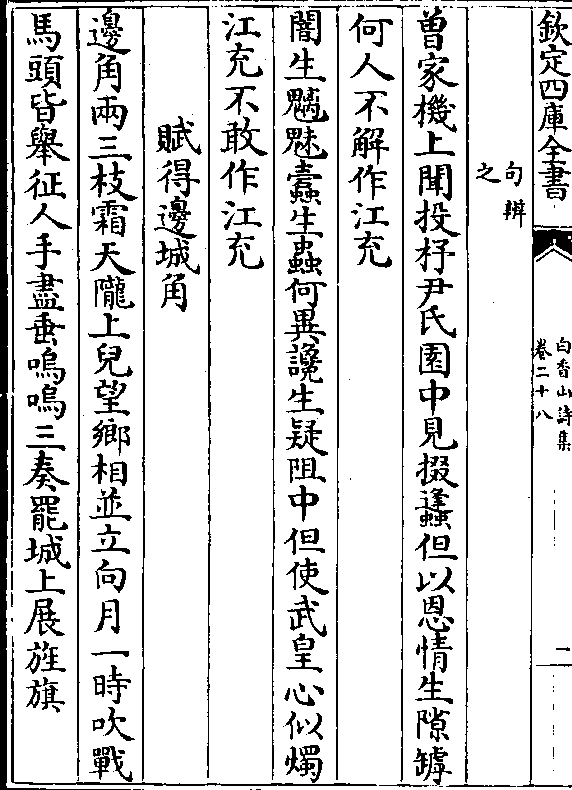 欽定四庫全書
白香山詩集
卷二十八
二
句辨
之
曽家機上聞投杼尹氏園中見掇蜂但以恩情生隙罅
何人不解作江充
闇生魑魅蠧生蟲何異讒生疑阻中但使武皇心似燭
江充不敢作江充
賦得邊城角
邊角兩三枝霜天隴上兒望鄉相並立向月一時吹戰
馬頭皆舉征人手盡垂嗚嗚三奏罷城上展旌旗